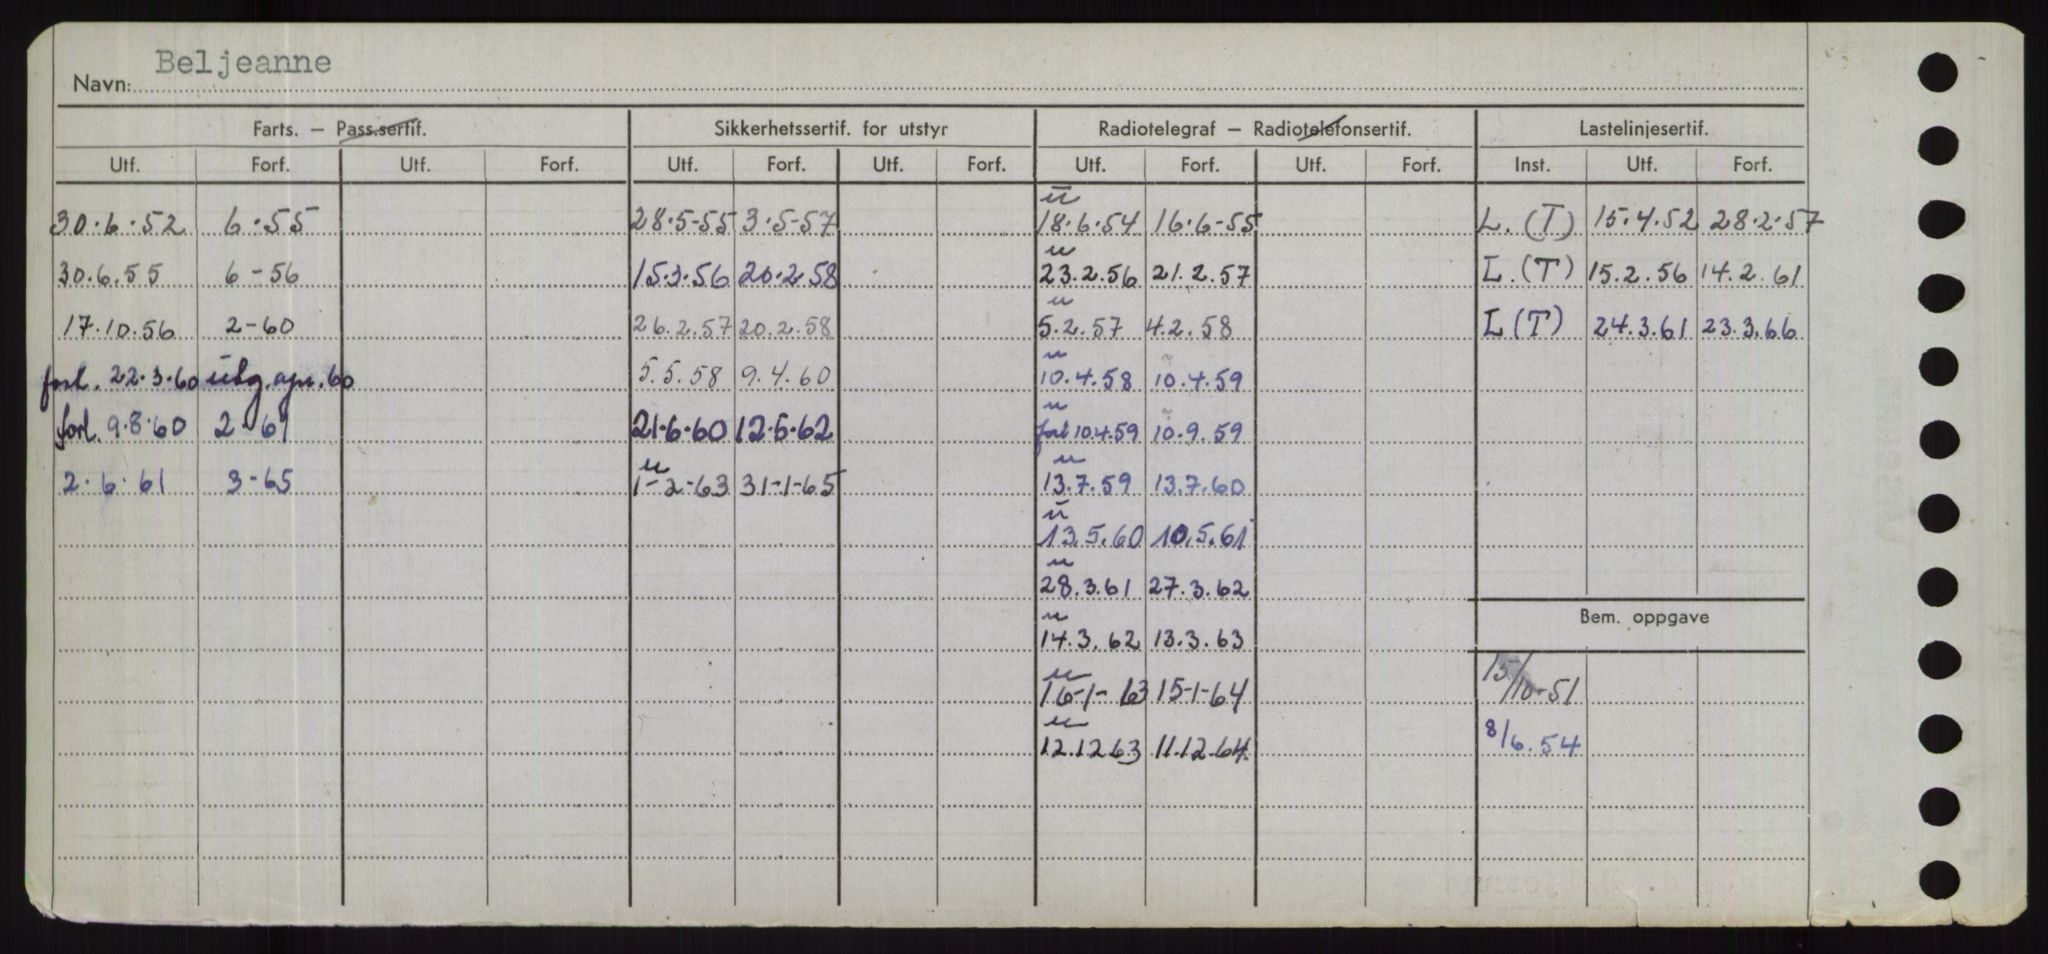 Navn: Beljeanne
Farts. — Pass.sertif. Sikkerhetssertif. for utstyr Radiotelegraf — Radiotelefonsertif. Lastelinjesertif.
Utf. Forf. Utf. Forf. Utf. Forf. Utf. Forf. Utf. Forf. Utf. Forf. Inst. Utf. Forf.
u
30.6.52 6.55 28.5-55 3.5-57 18.6.54 16.6-55 L.(T) 15.4.52 28.2.57
u
30.6.55 6-56 15.3.56 20.2.58 23.2.56 21.2.57 L.(T) 15.2.56 14.2.61
u
17.10.56 2-60 26.2.57 20.2.58 5.2.57 4.2.58 L(T) 24.3.61 23.3.66
u
forl. 22.3.60 utg. apr. 60 5.5.58 9.4.60 10.4.58 10.4.59
u
forl. 9.8.60 2-61 21.6.60 12.5.62 forl 10.4.59 10.9.59
u u
2.6.61 3-65 1-2-63 31-1-65 13.7.59 13.7.60
u
13.5.60 10.5.61
u
28.3.61 27.3.62
u
14.3.62 13.3.63
Bem. oppgave
u
16-1-63 15-1-64 15/10-51
u
12.12.63 11.12.64 8/6.54